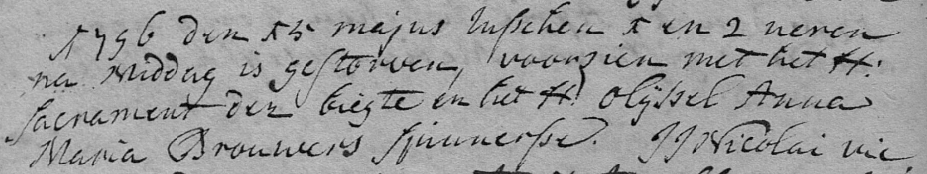 1796 den 15 majus tusschen 1 en 2 ueren
na middag is gestorven, voorzien met het H:
sacrament der biegte en het H: olijssel Anna
Maria Brouwers spinnersse. JJ Nicolai vic